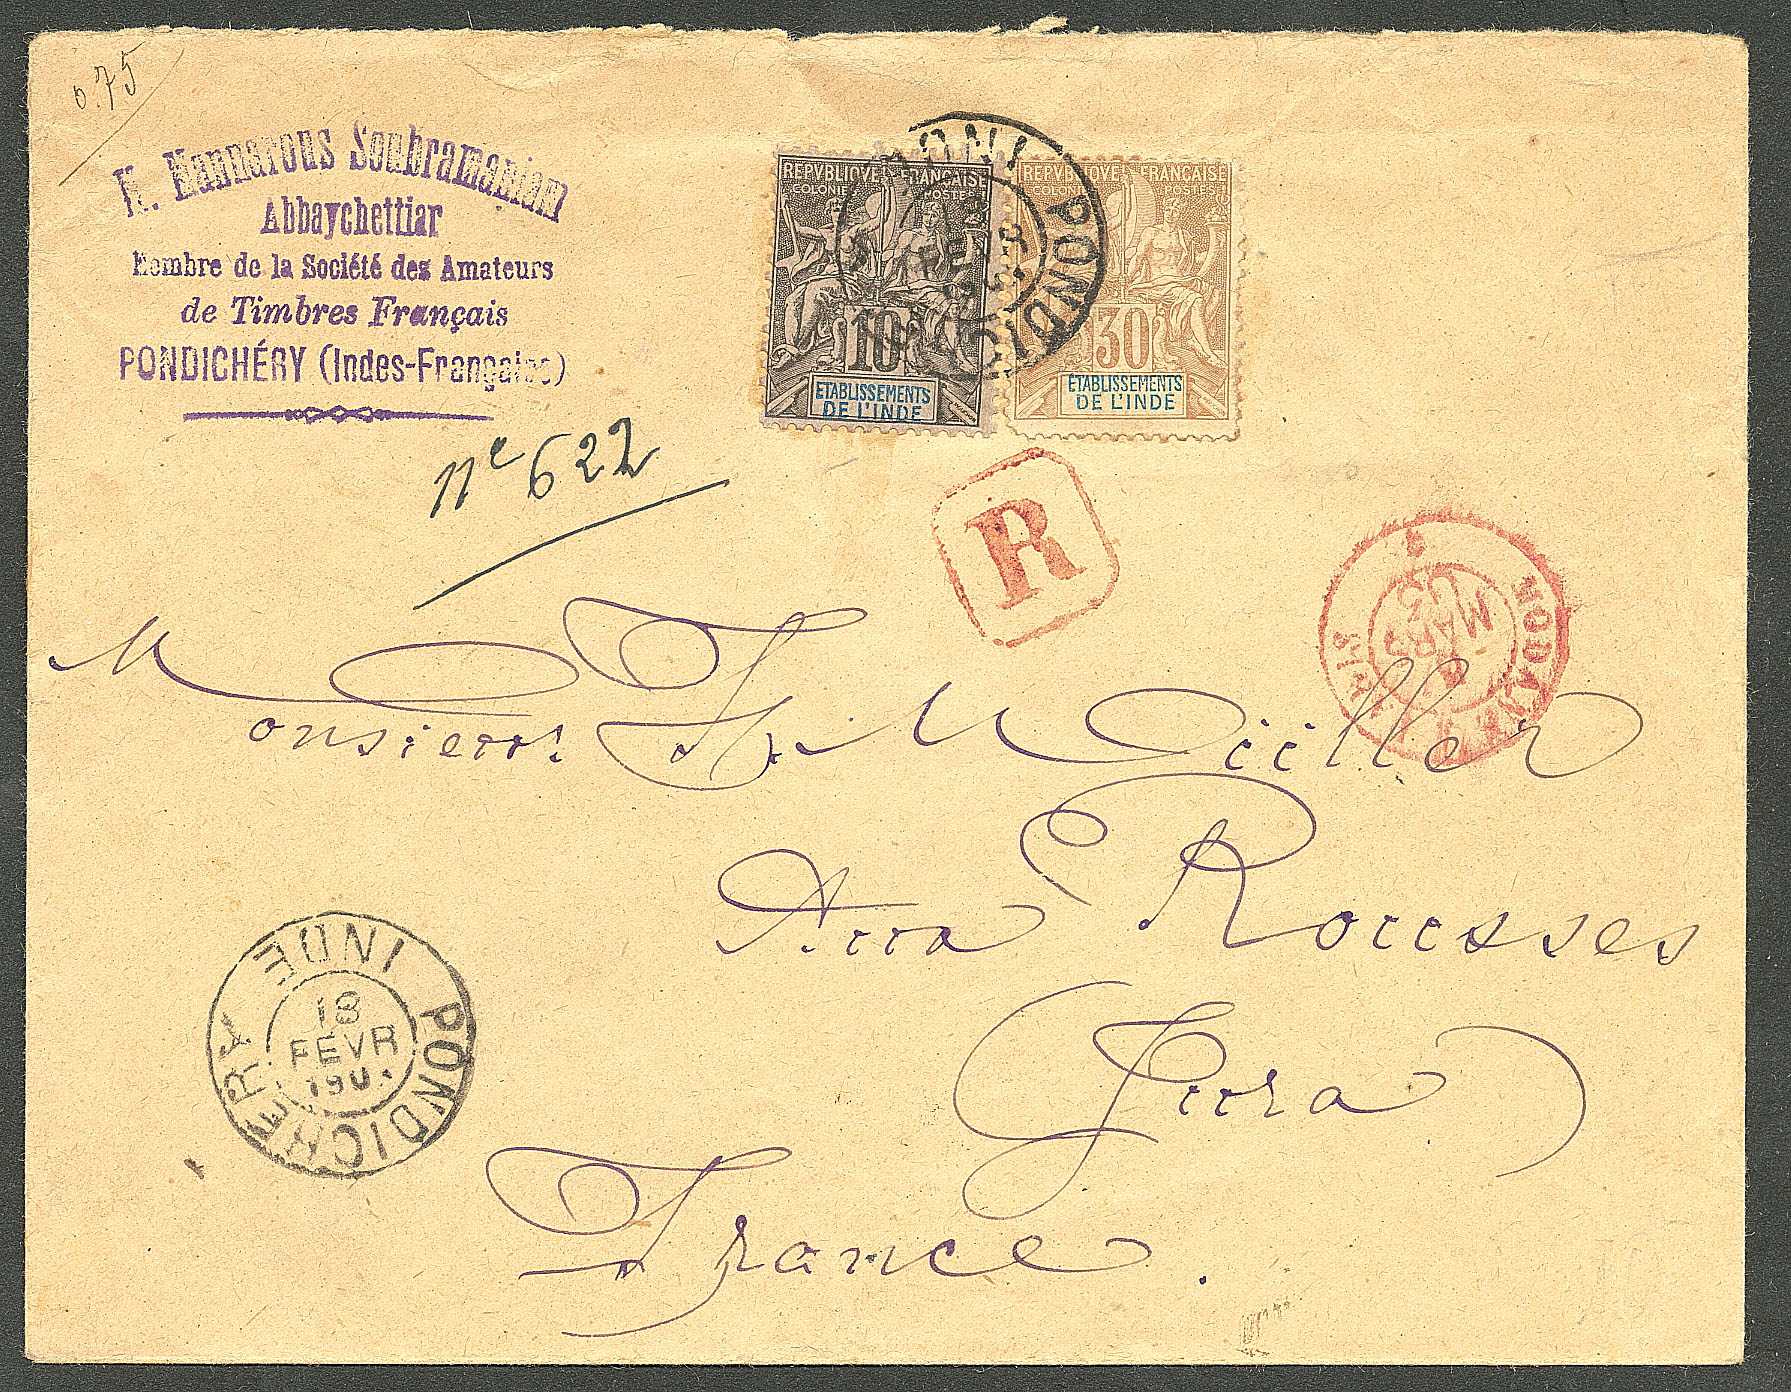 0.75
Mannarous Soubramanian
Abbaychettiar
Membre de la Société des Amateurs
de Timbres Français
PONDICHÉRY (Indes-Française)
REPVBLIQVE FRANÇAISE
COLONIES POSTES
10
ETABLISSEMENTS
DE L'INDE
REPVBLIQVE FRANÇAISE
COLONIES POSTES
30
ETABLISSEMENTS
DE L'INDE
INDE PONDICHERY
FEVR
nº 622
R
MODANE
MARS
03
Monsieur Fr Müller
Aux Rousses
Jura
France.
INDE PONDICHERY
18
FEVR
190